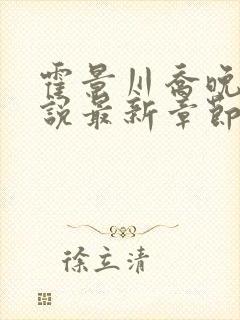 霍景川喬晚
說最新章節
徐立清